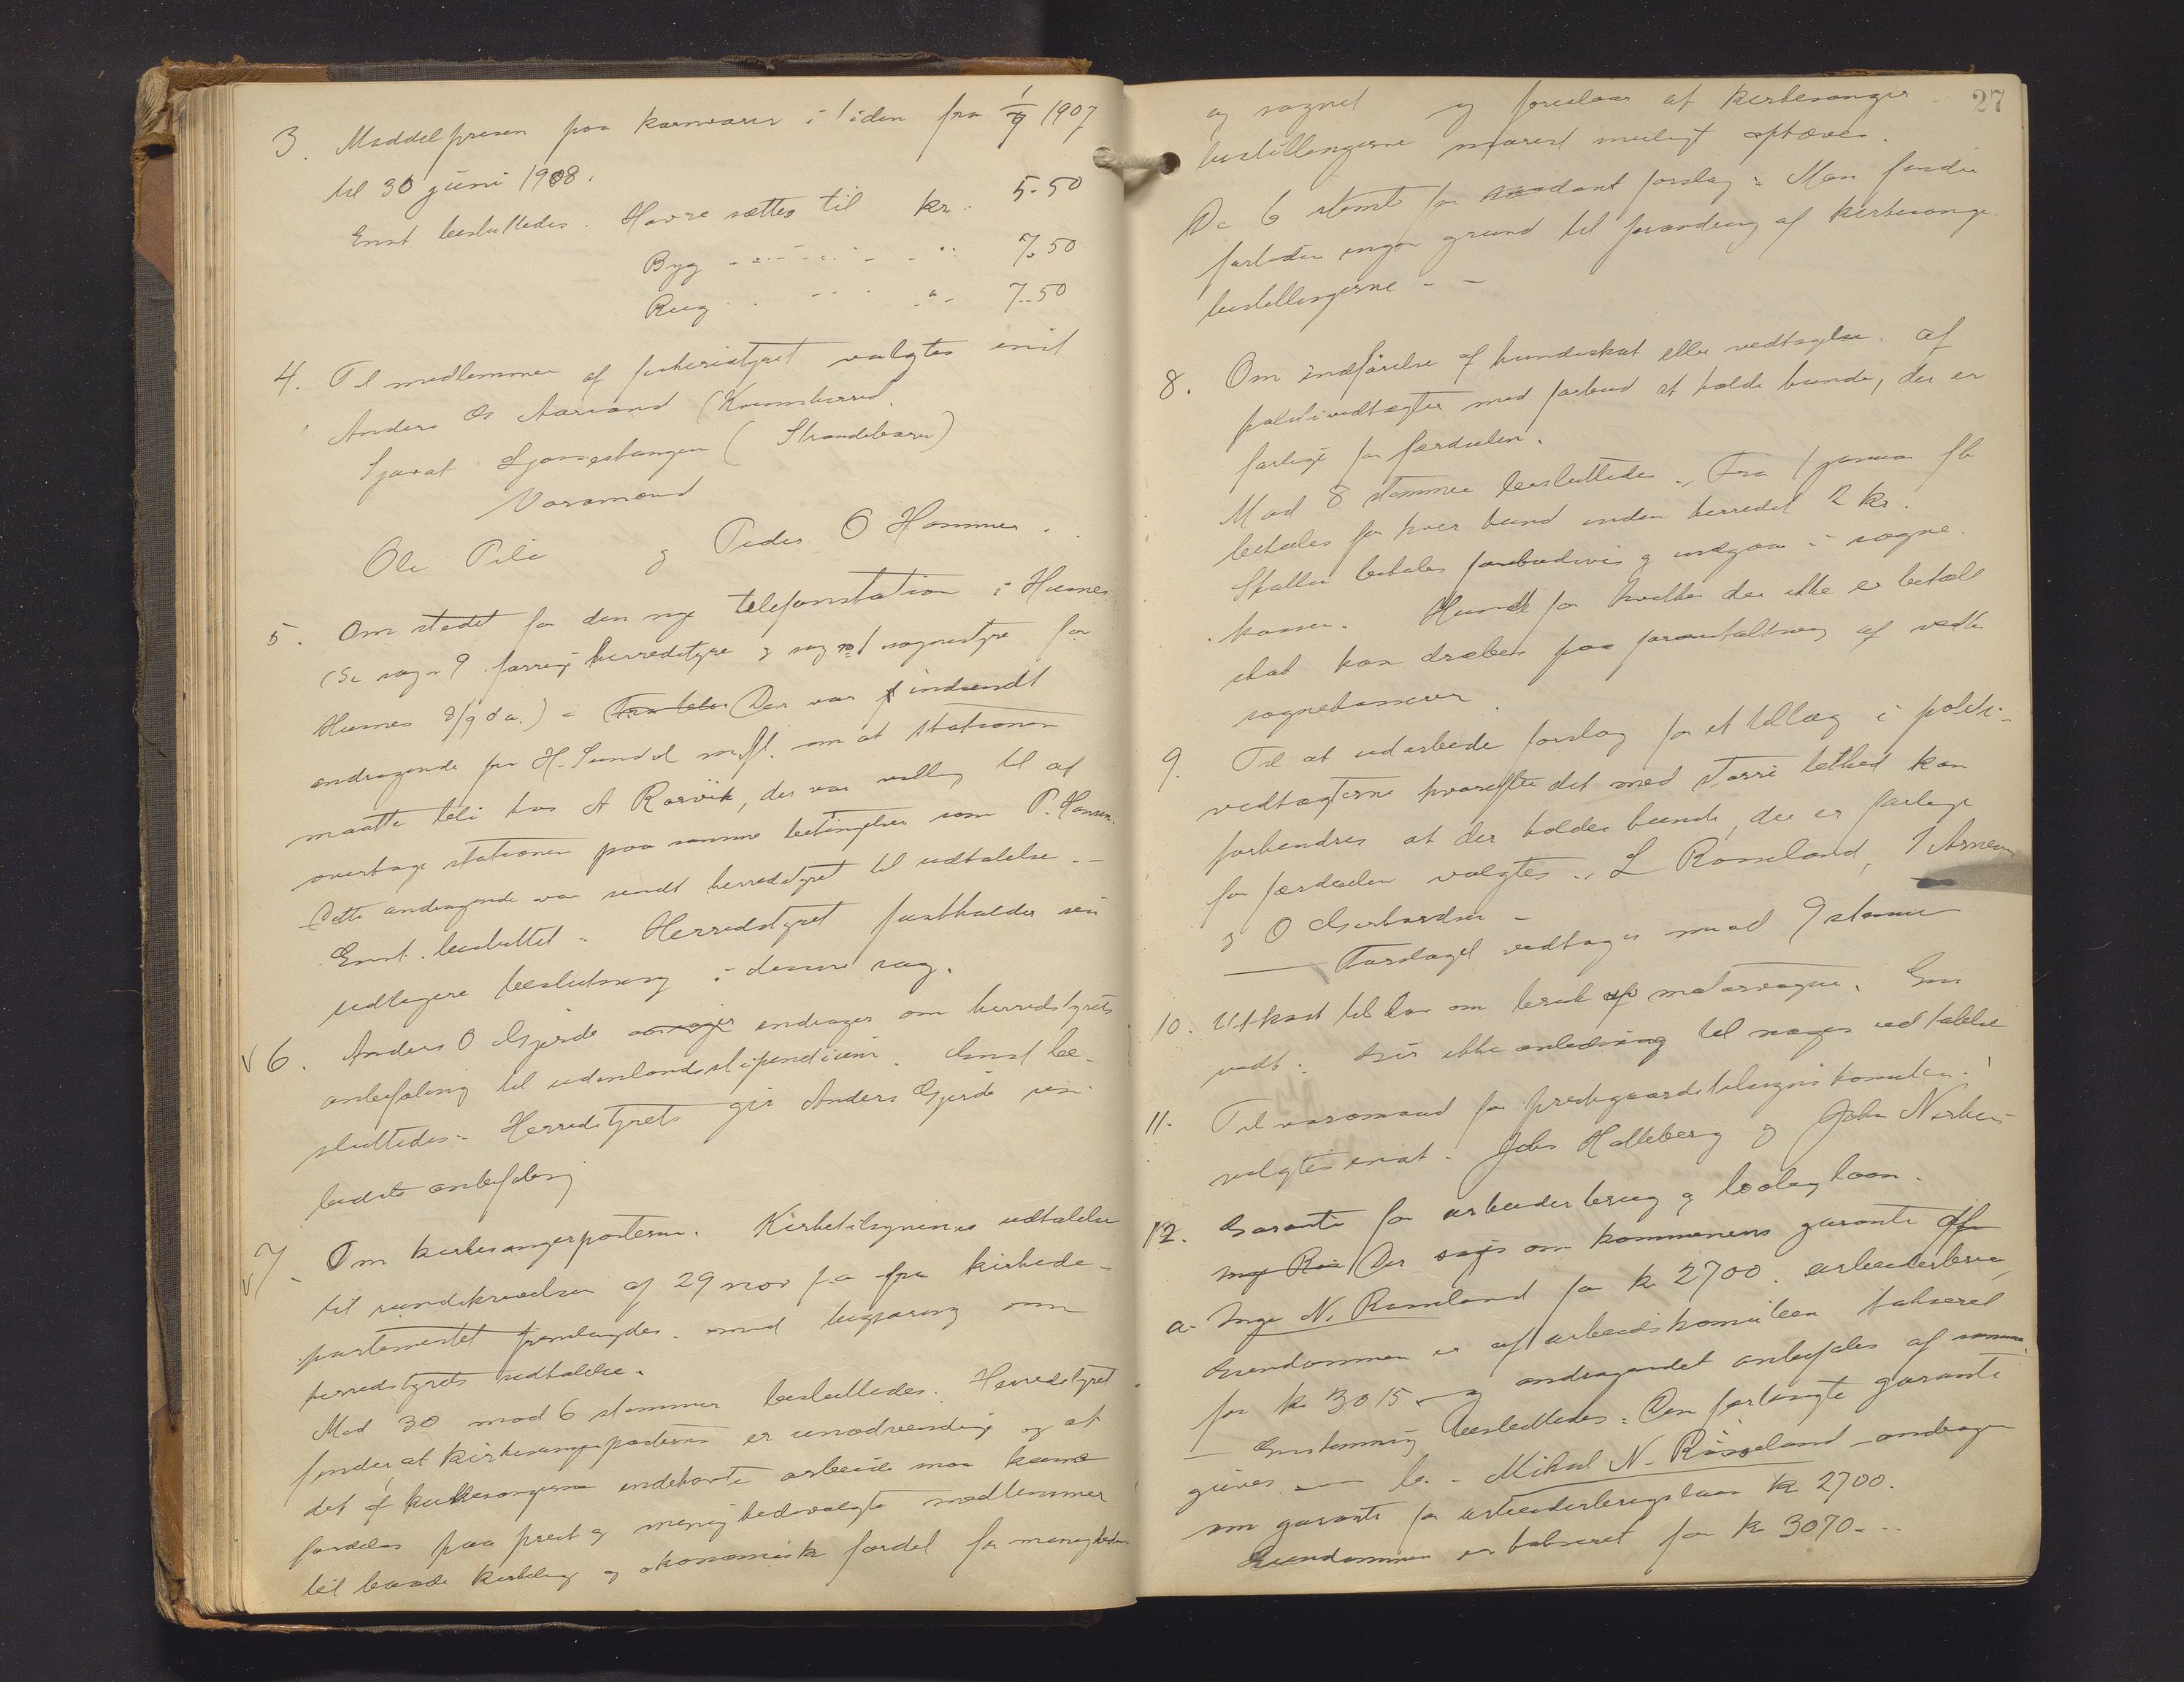 3. Middelprisen paa kornvarer i tiden fra 1/7 1907
til 30 juni 1908.
Enst besluttedes. Havre sættes til kr. 5.50
Byg 7.50
Rug 7.50
4. Til medlemmer af fiskeristyret valgtes enst
Anders Os Aarsand (Kvinnherred.
Sjovat Ljonestangen (Strandebarm)
Varamænd
Ole Pile og Peder O Hammer.
5. Om stedet for den nye telefonstation i Husnes
(Se sag 9 forrige herredstyre og sag no 1 sognestyre for
Husnes 8/9 d a.) = Der var indsendt
andragende fra H. Sunde m.fl. om at stationen
maatte bli hos A Rørvik, der var villig til at
overtage stationen paa samme betingelser som P. Hansen.
Dette andragende var sendt herredstyret til udtalelse.
Enst. besluttet. Herredstyret fastholder sin
tidligere beslutning i denne sag.
6. Anders O Gjerde andrager om herredstyrets
anbefaling til udenlandsstipendium. Enst be-
sluttedes. Herredstyret gir Anders Gjerde sin
bedste anbefaling
7. Om kirkesangerposterne. Kirketilsynenes udtalelse
til rundskrivelse af 29 nov f.a fra kirkede-
partementet fremlagdes med begjæring om
herredstyrets udtalelse.
Med 30 mod 6 stemmer besluttedes. Herredstyret
finder at kirkesangerposterne er unødvendige og at
det af kirkesangerne indehavte arbeide maa kunne
fordeles paa prest og menighedsvalgte medlemmer
til baade kirkelig og økonomisk fordel for menigheden
27
og sognet og foreslaar at kirkesanger
bestillingerne snarest muligt ophæves.
De 6 stemte for saadant forslag: Man finder
forleden ingen grund til forandring af kirkesanger-
bestillingerne - -
8. Om indførelse af hundeskat eller vedtagelse af
politivedtægter med forbud at holde hunde, der er
farlige for færdselen.
Mod 8 stemmer besluttedes. Fra 1 januar
betales for hver hund inden herredet 2 kr.
Skatten betales forskudvis og indgaar i sogne-
kassen. Hunde for hvilke der ikke er betalt
skat kan dræbes paa foranstaltning af vedk
sognekasserer
9. Til at udarbeide forslag for et tillæg i politi-
vedtægterne hvorefter det med større lethed kan
forhindres at der holdes hunde, der er farlige
for færdselen valgtes: L Røsseland, I Arnesen
og O Gerhardsen -
Forslaget vedtoges mod 9 stemmer
10. Utkast til lov om bruk af motorvogne. Ens
vedt: Gir ikke anledning til nogen udtalelse
11. Til varamænd for prestegaardstilsynskomiteen.
valgtes enst. Johs Halleberg og John Nerhus
12. Garanti for arbeiderbrug og boliglaan.
Der søges om kommunens garanti
a. Inge N. Røsseland for kr 2700. arbeiderbrug
Eiendommen er af arbeidskomiteen takseret
for kr 3015 og andragendet anbefales af samme.
Enstemmig besluttedes: Den forlangte garanti
gives — b. - Mikal N. Røsseland andrager
om garanti for arbeiderbrugslaan kr 2700.
Eiendommen er takseret for kr 3070. -